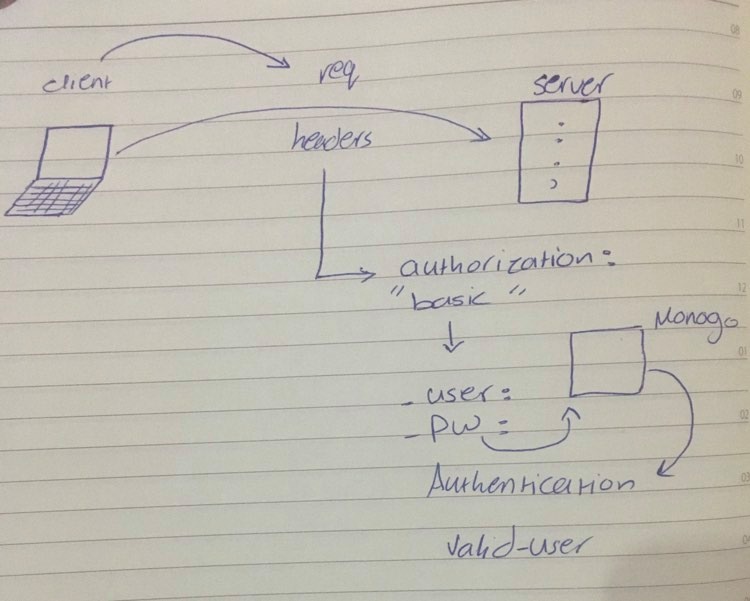 client
req
server
headers
authorization:
"basic"
Monogo
- user:
- PW :
Authentication
valid-user
08
09
10
11
12
01
02
03
04